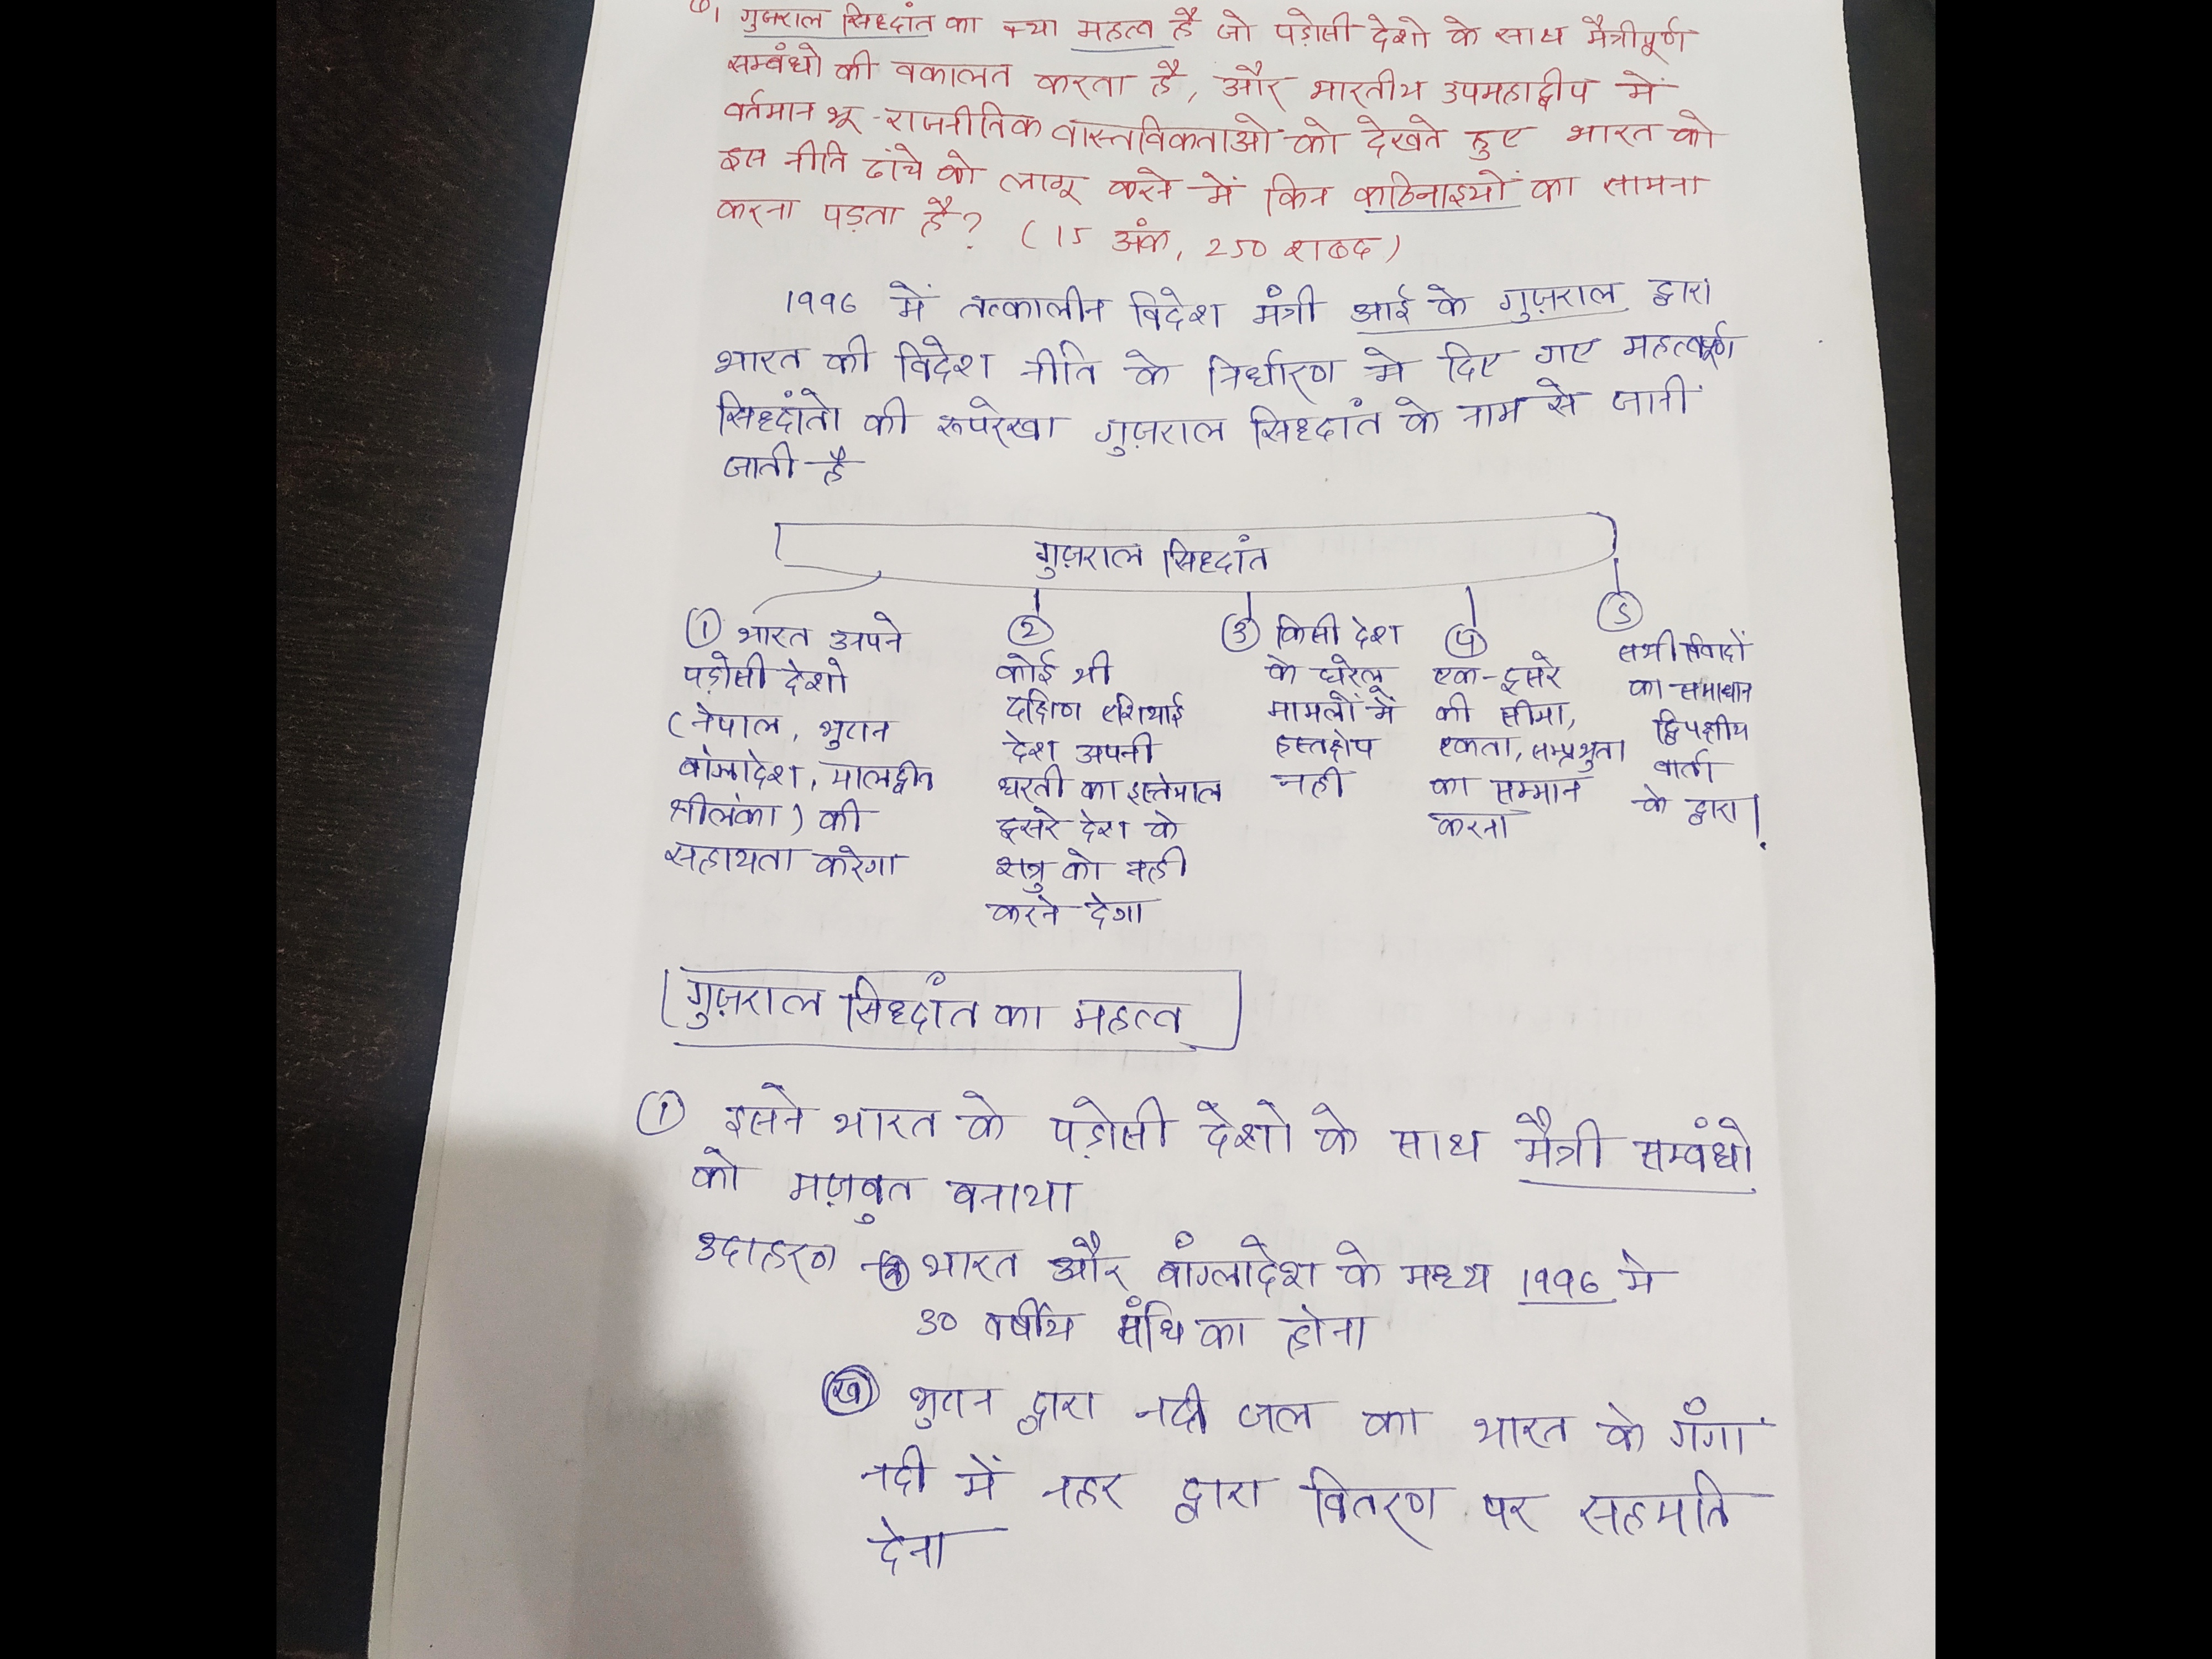 Q1 गुजराल सिद्धांत का क्या महत्व है जो पड़ोसी देशो के साथ मैत्रीपूर्ण
सम्बंधो की वकालत करता है, और भारतीय उपमहाद्वीप में
वर्तमान भू-राजनीतिक वास्तविकताओ को देखते हुए भारत को
इस नीति ढांचे को लागू करने में किन कठिनाइयों का सामना
करना पड़ता है? (15 अंक, 250 शब्द)
1996 में तत्कालीन विदेश मंत्री आई के गुज़राल द्वारा
भारत की विदेश नीति के निर्धारण मे दिए गए महत्वपूर्ण
सिद्धांतो की रूपरेखा गुज़राल सिद्धांत के नाम से जानी
जाती है
गुज़राल सिद्धांत
① भारत अपने
पड़ोसी देशो
(नेपाल, भुटान
बांग्लादेश, मालद्वीव
श्रीलंका) की
सहायता करेगा
②
कोई भी
दक्षिण एशियाई
देश अपनी
धरती का इस्तेमाल
दूसरे देश के
शत्रु को नही
करने देगा
③ किसी देश
के घरेलू
मामलों में
हस्तक्षेप
नही
④
एक-दूसरे
की सीमा,
एकता, सम्प्रभुता
का सम्मान
करना
⑤
सभी विवादों
का समाधान
द्विपक्षीय
वार्ता
के द्वारा।
गुज़राल सिद्धांत का महत्व
① इसने भारत के पड़ोसी देशो के साथ मैत्री सम्बंधो
को मज़बुत बनाया
उदाहरण - क भारत और बांग्लादेश के मध्य 1996 मे
30 वर्षीय संधि का होना
ख भुटान द्वारा नदी जल का भारत के गंगा
नदी में नहर द्वारा वितरण पर सहमति
देना